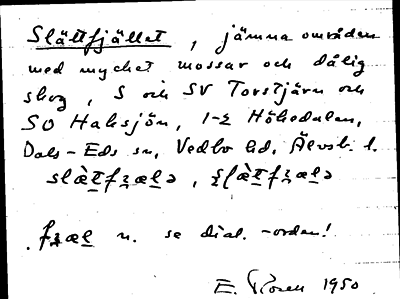 Slättfjället, jämna områden
med mycket mossar och dålig
skog, S och SV Torstjärn och
SO Haksjön, 1-2 Höhedalen,
Dals-Eds sn, Vedbo hd, Älvsb. l.
n. se dial.-orden!
E. Rosen 1950